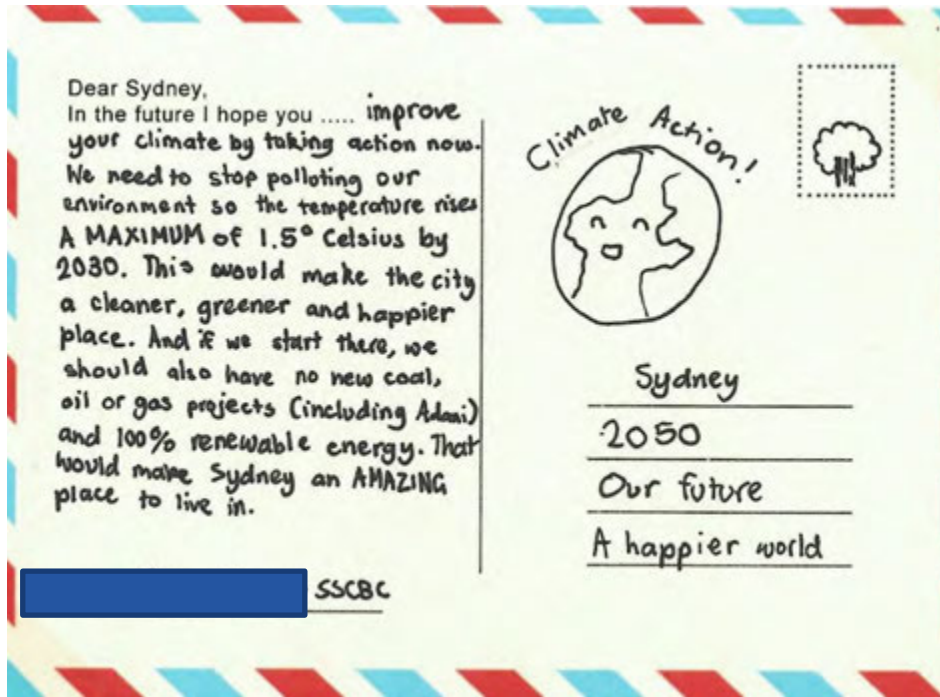 Dear Sydney,
In the future I hope you ..... improve
your climate by taking action now.
We need to stop polloting our
environment so the temperature rises
A MAXIMUM of 1.5° Celsius by
2030. This would make the city
a cleaner, greener and happier
place. And if we start there, we
should also have no new coal,
oil or gas projects (including Adani)
and 100% renewable energy. That
would make Sydney an AMAZING
place to live in.
SSCBC
Climate Action!
Sydney
2050
Our future
A happier world